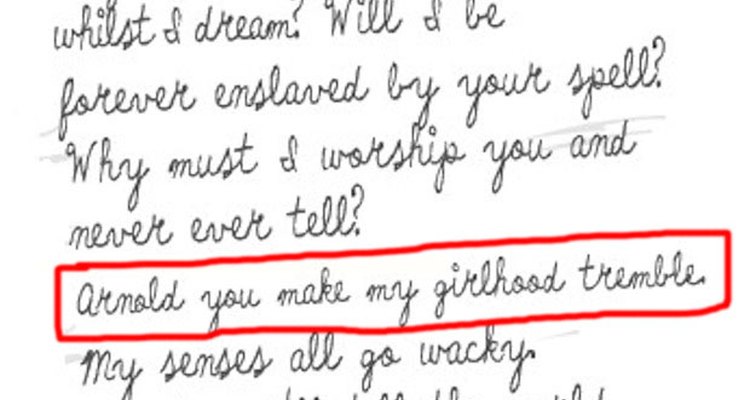 whilst I dream? Will I be
forever enslaved by your spell?
Why must I worship you and
never ever tell?
Arnold you make my girlhood tremble.
My senses all go wacky.